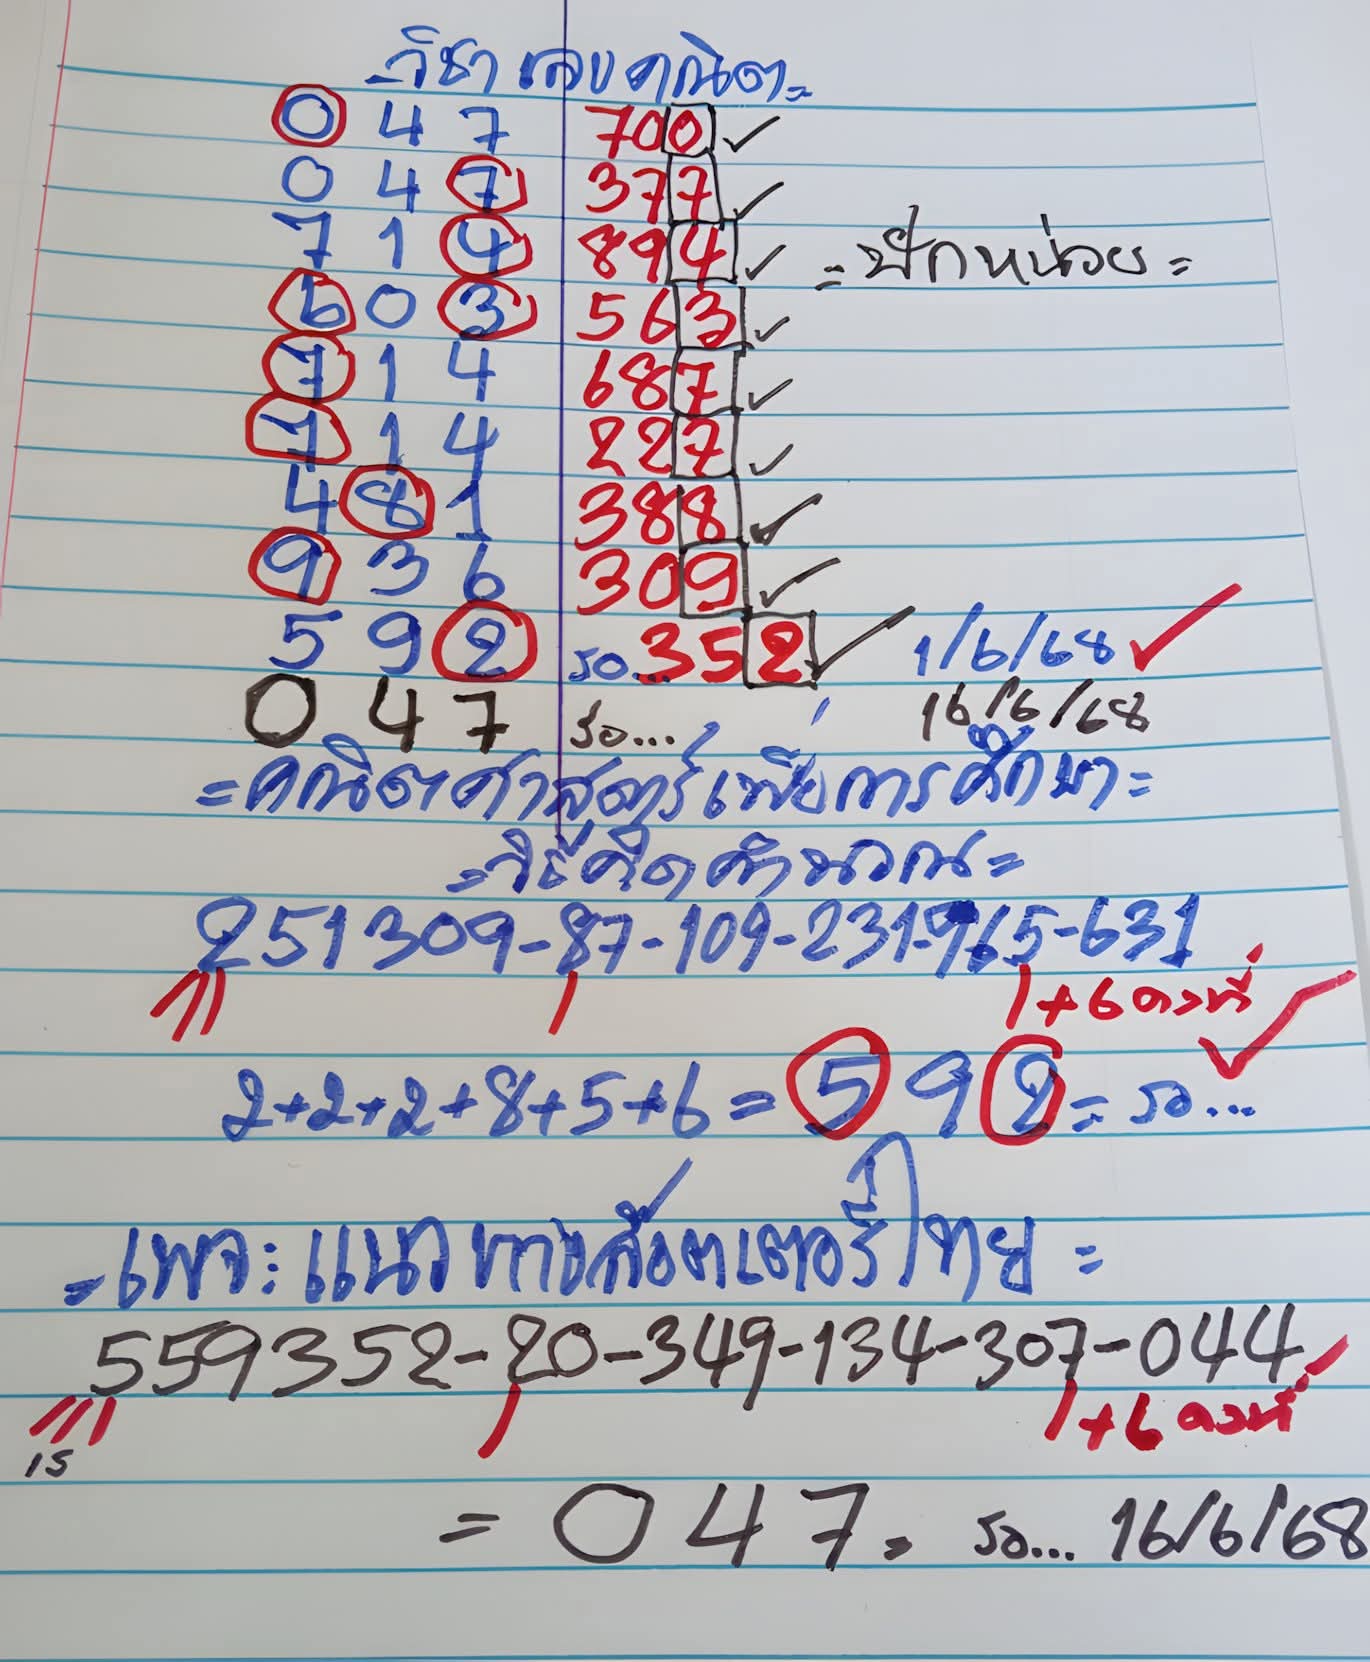 =วิชา เลขคณิต=
0 4 7 700
0 4 7 377
7 1 4 894
=ปักหน่วย=
6 0 3 563
7 1 4 687
7 1 4 227
4 8 1 388
9 3 6 309
5 9 2 รอ...352 1/6/68
0 4 7 รอ... 16/6/68
=คณิตศาสตร์เพื่อการศึกษา=
=วิธีคิดคำนวณ=
251309-87-109-231-965-631
+6 คงที่
2+2+2+8+5+6=592=รอ...
=เพจ:แนวทางล็อตเตอรี่ไทย=
559352-20-349-134-307-044
+6 คงที่
15
=047= รอ... 16/6/68